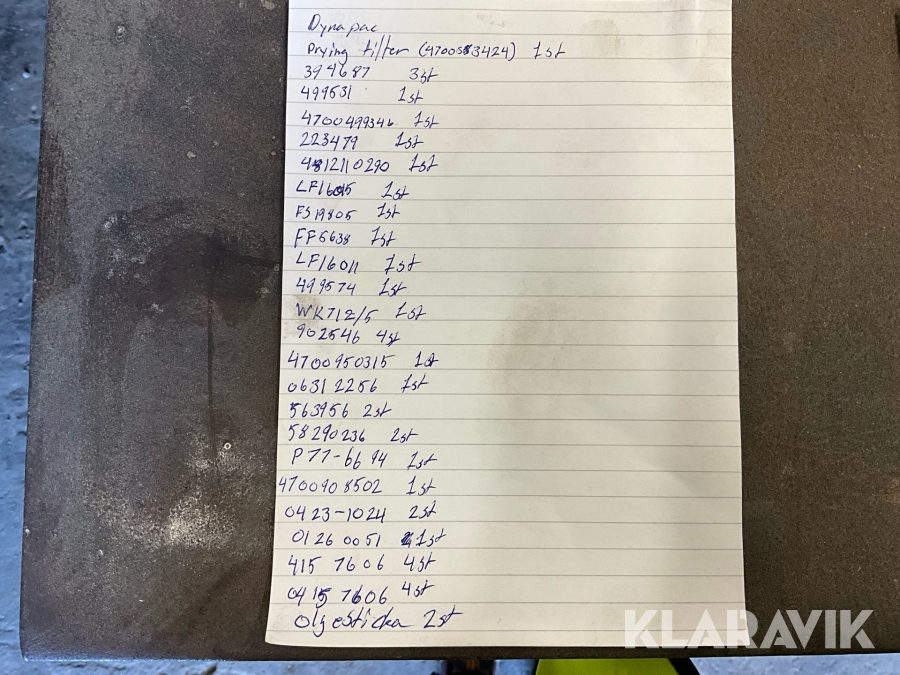 Dynapac
Drying filter (4700583424) 1st
394687 3st
499531 1st
4700499346 1st
223479 1st
4812110290 1st
LF16015 1st
FS19805 1st
FF5638 1st
LF16011 1st
499574 1st
WK712/5 1st
902546 4st
4700950315 1st
06312256 1st
563956 2st
58290236 2st
P77-6694 1st
4700908502 1st
0423-1024 2st
0126 0051 1st
415 7606 4st
0415 7606 4st
Oljesticka 2st
KLARAVIK